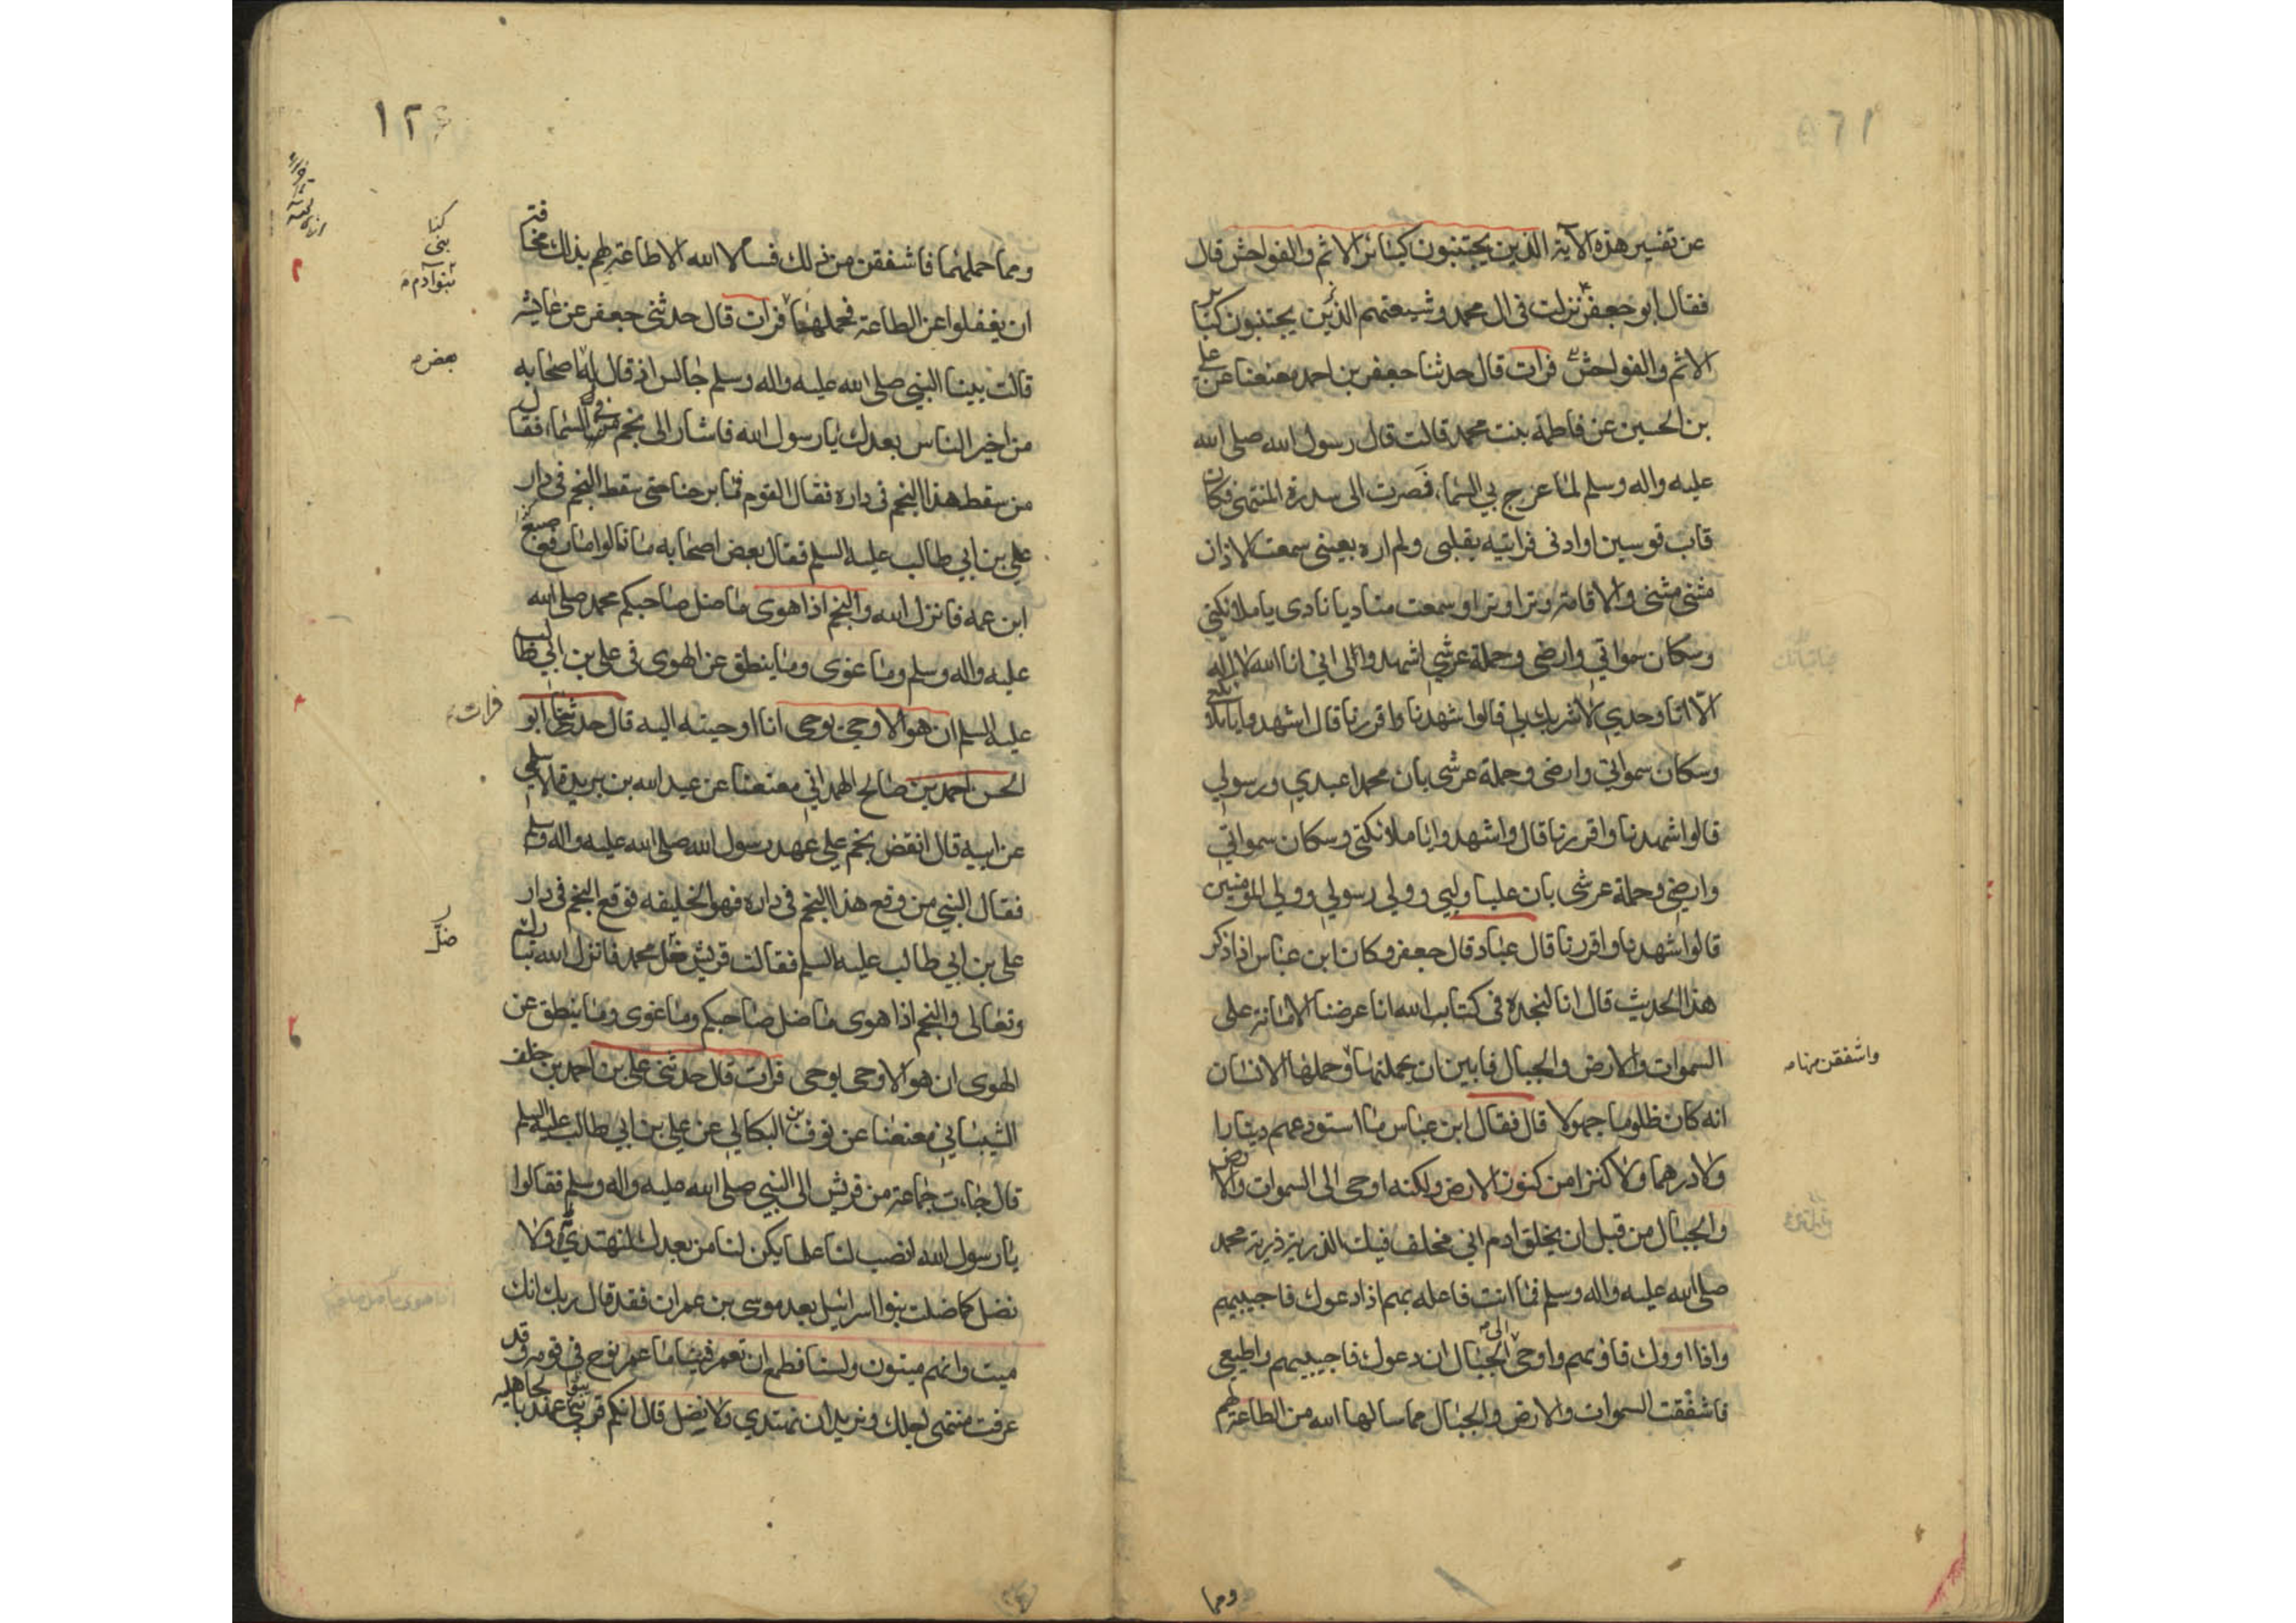 عن تفسير هذه الآية الذين يجتنبون كبائر الاثم والفواحش قال
فقال ابو جعفر نزلت في ال محمد وشيعتهم الذين يجتنبون كبائر
الاثم والفواحش فرات قال حدثنا جعفر بن احمد معنعنا عن علي
بن الحسين عن فاطمة بنت محمد قالت قال رسول الله صلى الله
عليه واله وسلم لما عرج بي السماء فصرت الى سدرة المنتهى فكان
قاب قوسين او ادنى فرايته بقلبي ولم اره بعيني سمعت الاذان
مثنى مثنى والاقامة وترا وترا وسمعت مناديا نادى يا ملائكتي
وسكان سمواتي وارضي وحملة عرشي اشهدوا الى اني انا الله لا اله
الا انا وحدي لا شريك لي قالوا شهدنا واقررنا قال اشهدوا يا ملائكتي
وسكان سمواتي وارضي وحملة عرشي بان محمدا عبدي ورسولي
قالوا شهدنا واقررنا قال واشهدوا يا ملائكتي وسكان سمواتي
وارضي وحملة عرشي بان عليا وليي وولي رسولي وولي المؤمنين
قالوا شهدنا واقررنا قال عباد قال جعفر وكان ابن عباس اذا ذكر
هذا الحديث قال انا لنجده في كتاب الله انا عرضنا الامانة على
السموات والارض والجبال فابين ان يحملنها وحملها الانسان
واشفقن منها
انه كان ظلوما جهولا قال فقال ابن عباس ما استودعهم دينارا
ولا درهما ولا كنزا من كنوز الارض ولكنه اوحى الى السموات والارض
والجبال من قبل ان يخلق ادم اني مخلف فيك الذرية ذرية محمد
صلى الله عليه واله وسلم فما انت فاعله بهم اذا دعوك فاجيبيهم
واذا اووك فاويهم واوحى الى الجبال ان دعوك فاجيبيهم واطيعي
فاشفقت السموات والارض والجبال مما سالها الله من الطاعة لهم
ومما
١٢
ومما حملهما فاشفقن من ذلك فسالا الله الا طاعة لهم بذلك مخافة
كنا
بني
بنو آدم
ان يغفلوا عن الطاعة فحملها فرات قال حدثني جعفر عن عايشة
قالت بينا النبي صلى الله عليه واله وسلم جالس اذ قال له اصحابه
بعض
من اخير الناس بعدك يا رسول الله فاشار الى نجم في السماء فقال
من سقط هذا النجم في داره فقال القوم فما برحنا حتى سقط النجم في دار
علي بن ابي طالب عليه السلم فقال بعض اصحابه ما قالوا ما رفع بضبع
ابن عمه فانزل الله والنجم اذا هوى ما ضل صاحبكم محمد صلى الله
عليه واله وسلم وما غوى وما ينطق عن الهوى في علي بن ابي طالب
عليه السلم ان هو الا وحي يوحى انا اوحيته اليه قال حدثنا ابو
فرات
الحسن احمد بن صالح الهمداني معنعنا عن عبد الله بن بريدة الاسلمي
عن ابيه قال انقض نجم على عهد رسول الله صلى الله عليه واله وسلم
فقال النبي من وقع هذا النجم في داره فهو الخليفه فوقع النجم في دار
علي بن ابي طالب عليه السلم فقالت قريش ضل محمد فانزل الله تبارك
ضل
وتعالى والنجم اذا هوى ما ضل صاحبكم وما غوى وما ينطق عن
الهوى ان هو الا وحي يوحى فرات قال حدثني علي بن احمد بن خلف
الشيباني معنعنا عن نوف البكالي عن علي بن ابي طالب عليه السلم
قال جاءت جماعة من قريش الى النبي صلى الله عليه واله وسلم فقالوا
يا رسول الله انصب لنا علما يكن لنا من بعدك لنهتدي ولا
نضل كما ضلت بنوا اسرائيل بعد موسى بن عمران فقد قال ربك انك
ميت وانهم ميتون ولسنا نطمع ان تعمر فينا ما عمر نوح في قومه وقد
عرفت منتهى اجلك ونريد ان نهتدي ولا نضل قال انكم قريبوا عهد بالجاهلية